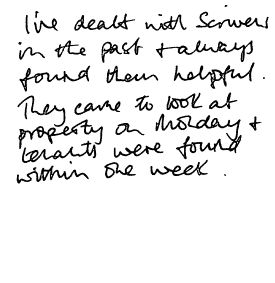 I've dealt with Scrivens
in the past + always
found them helpful.
They came to look at
property on Monday +
tenants were found
within one week.